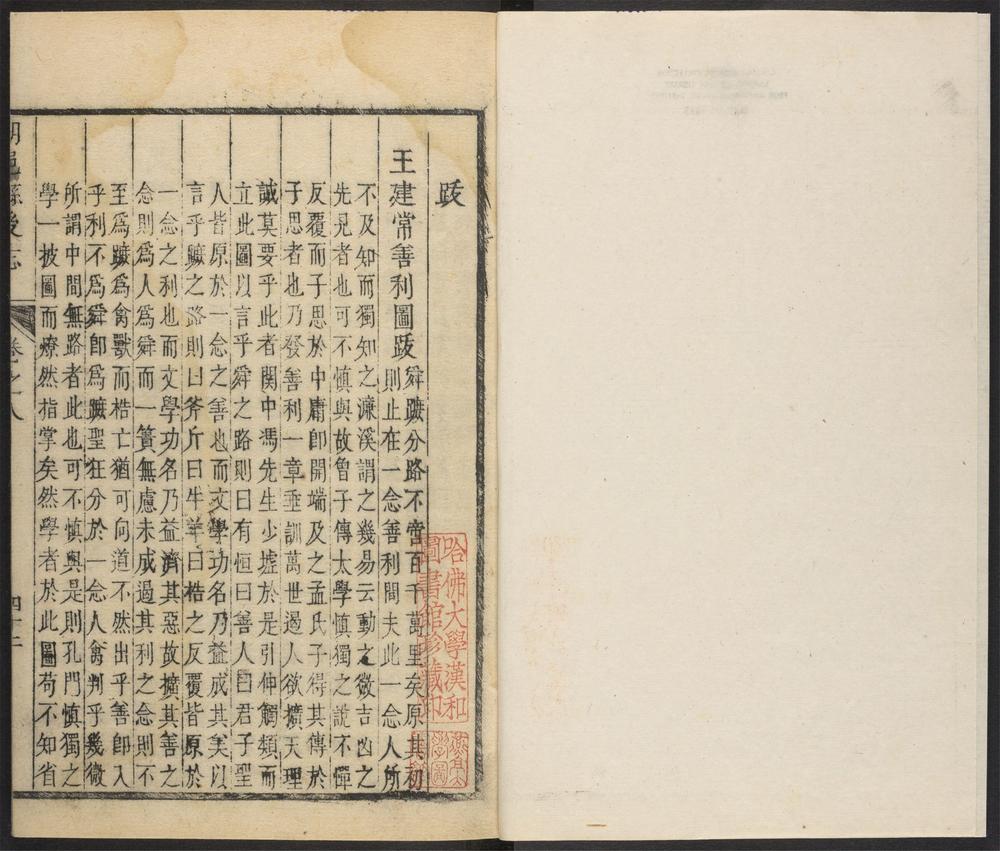 跋
王建常善利圖跋
舜蹠分路不啻百千萬里矣原其初
則止在一念善利間夫此一念人所
不及知而獨知之濂溪謂之幾易云動之微吉凶之
先見者也可不慎與故曾子傳大學慎獨之說不憚
反覆而子思於中庸即開端及之孟氏子得其傳於
子思者也乃發善利一章垂訓萬世遏人欲擴天理
誠莫要乎此者関中馮先生少墟於是引伸觸類而
立此圖以言乎舜之路則曰有恒曰善人曰君子聖
人皆原於一念之善也而文學功名乃益成其美以
言乎蹠之路則曰斧斤曰牛羊曰梏之反覆皆原於
一念之利也而文學功名乃益濟其惡故擴其善之
念則爲人爲舜而一簣無慮未成過其利之念則不
至爲蹠爲禽獸而梏亡猶可向道不然出乎善即入
乎利不爲舜即爲蹠聖狂分於一念人禽判乎幾微
所謂中間無路者此也可不慎與是則孔門慎獨之
學一披圖而燎然指掌矣然學者於此圖苟不知省
朝邑縣後志
卷之八
四十二
哈佛大學漢和
圖書館珍藏印